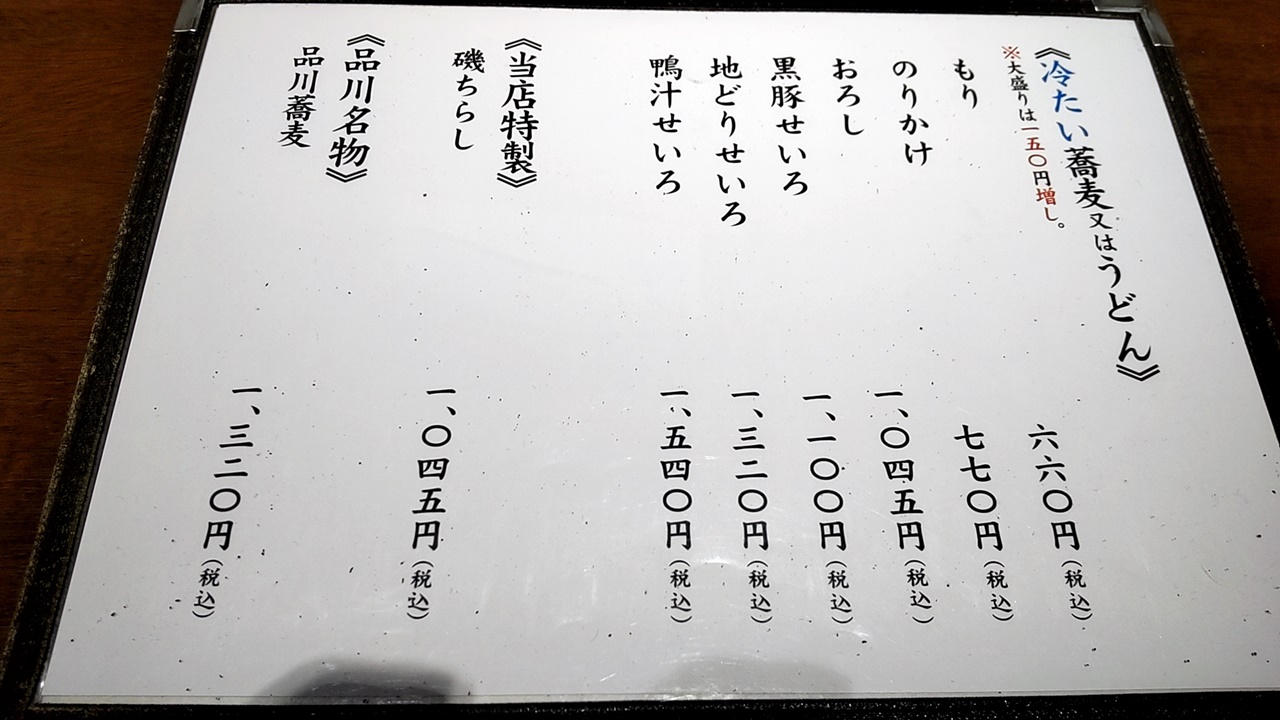 《冷たい蕎麦又はうどん》
※大盛りは一五〇円増し。
もり 六六〇円(税込)
のりかけ 七七〇円(税込)
おろし 一、〇四五円(税込)
黒豚せいろ 一、一〇〇円(税込)
地どりせいろ 一、三二〇円(税込)
鴨汁せいろ 一、五四〇円(税込)
《当店特製》
磯ちらし 一、〇四五円(税込)
《品川名物》
品川蕎麦 一、三二〇円(税込)